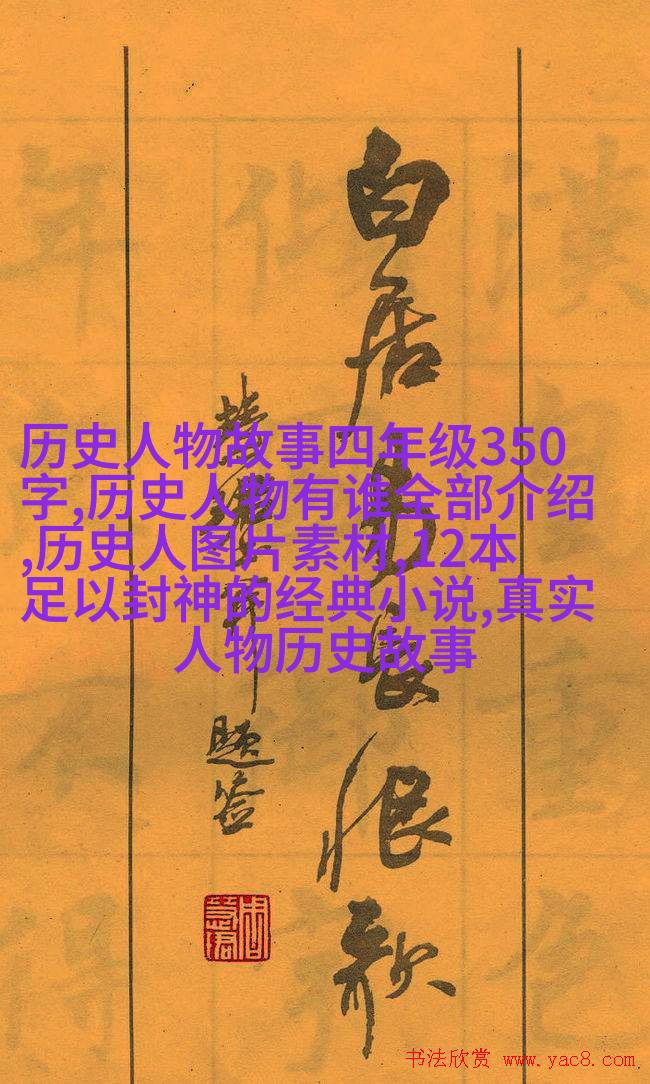 白居易长恨歌
题签
历史人物故事四年级350
字,历史人物有谁全部介绍
,历史人图片素材,12本
足以封神的经典小说,真实
人物历史故事
书法欣赏 www.yac8.com